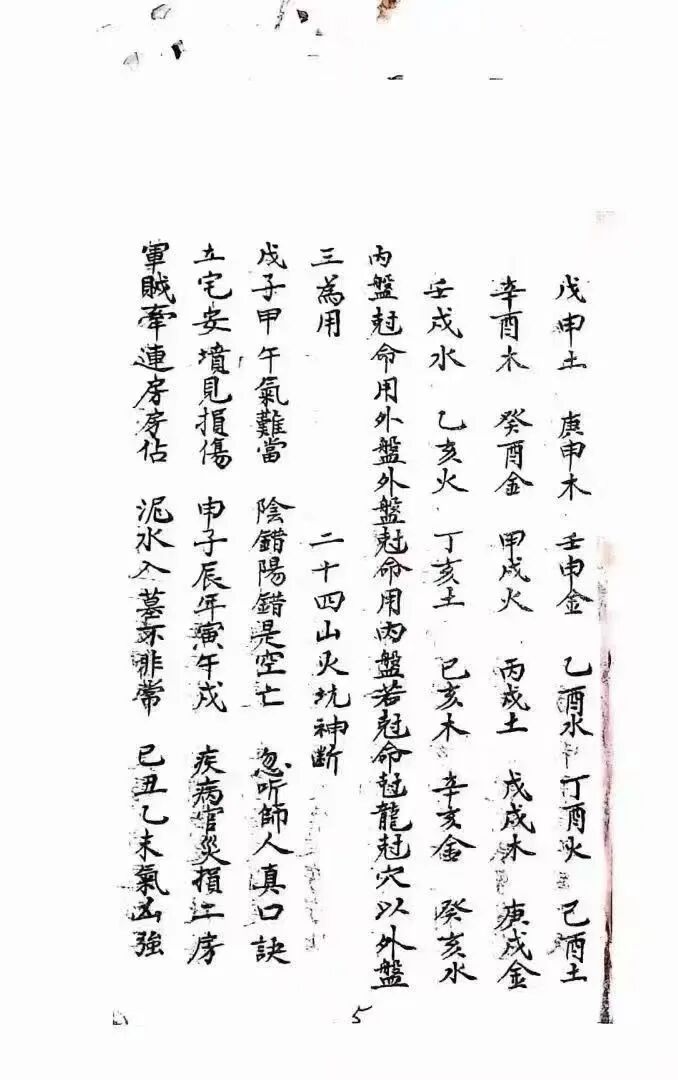 戊申土 庚申木 壬申金 乙酉水 丁酉火 己酉土
辛酉木 癸酉金 甲戌火 丙戌土 戊戌木 庚戌金
壬戌水 乙亥火 丁亥土 己亥木 辛亥金 癸亥水
內盤尅命用外盤外盤尅命用內盤若尅命尅龍尅穴以外盤
三為用 二十四山火坑神断
戊子甲午氣難當 陰錯陽錯是空亡 忽听師人真口訣
立宅安墳見損傷 申子辰年寅午戌 疾病官災損二房
軍賊牽連房房佔 泥水入墓坏非常 己丑乙未氣凶強
5